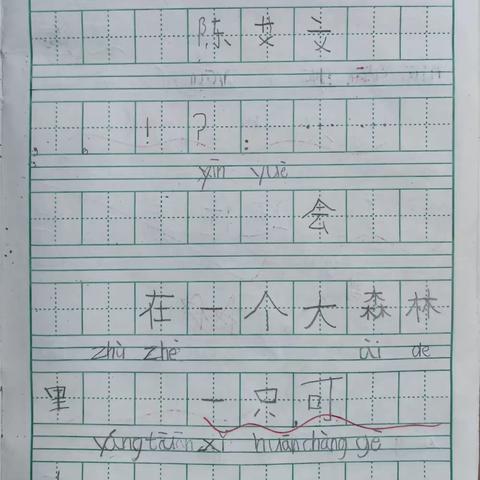 陈 艾
, 。 ! ? : ……
yīn yuè
会
在 一 个 大 森 林
zhù zhè ài de
里 一 只 可
yáng xǐ huān chàng ge